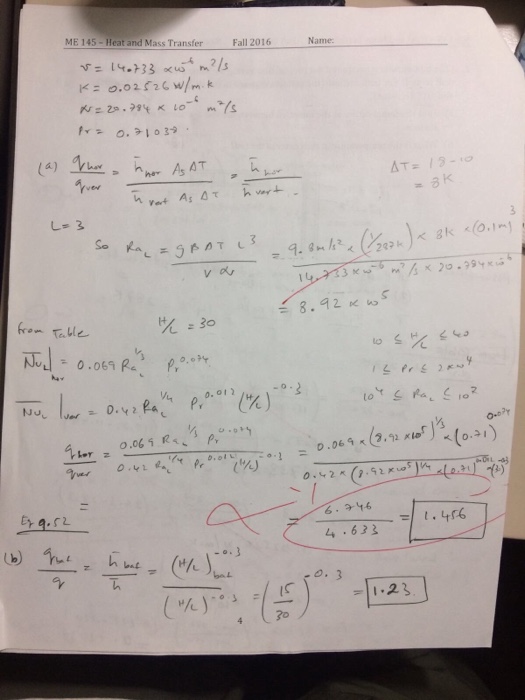 ME 145 - Heat and Mass Transfer Fall 2016 Name:
ν = 14.733 x10^-6 m²/s
K = 0.02526 W/m.k
α = 20.784 x 10^-6 m²/s
Pr = 0.71039.
(a) q_hor / q_ver = h̄_hor As ΔT / h̄_vert As ΔT = h̄_hor / h̄_vert. ΔT = 18-10
= 8K
L = 3
So Ra_L = g β ΔT L³ / ν α = 9.8m/s² x (1/287k) x 8k x (0.1m)³ / 14.733 x10^-6 m²/s x 20.784 x10^-6
= 8.92 x 10^5
from Table H/L = 30 10 ≤ H/L ≤ 40
N̄u_L|hor = 0.069 Ra_L^1/3 Pr^0.074 1 ≤ Pr ≤ 2x10^4
N̄u_L|ver = 0.42 Ra_L^1/4 Pr^0.012 (H/L)^-0.3 10^4 ≤ Ra_L ≤ 10^7
q_hor / q_ver = 0.069 Ra_L^1/3 Pr^0.074 / 0.42 Ra_L^1/4 Pr^0.012 (H/L)^-0.3 = 0.069 x (8.92 x10^5)^1/3 x (0.71)^0.074 / 0.42 x (8.92 x10^5)^1/4 x (0.71)^0.012
= = 6.746 / 4.633 = 1.456
Eq 9.52
(b) q_bal / q = h̄_bal / h̄ = (H/L)_bal^-0.3 / (H/L)^-0.3 = (15/30)^-0.3 = 1.23